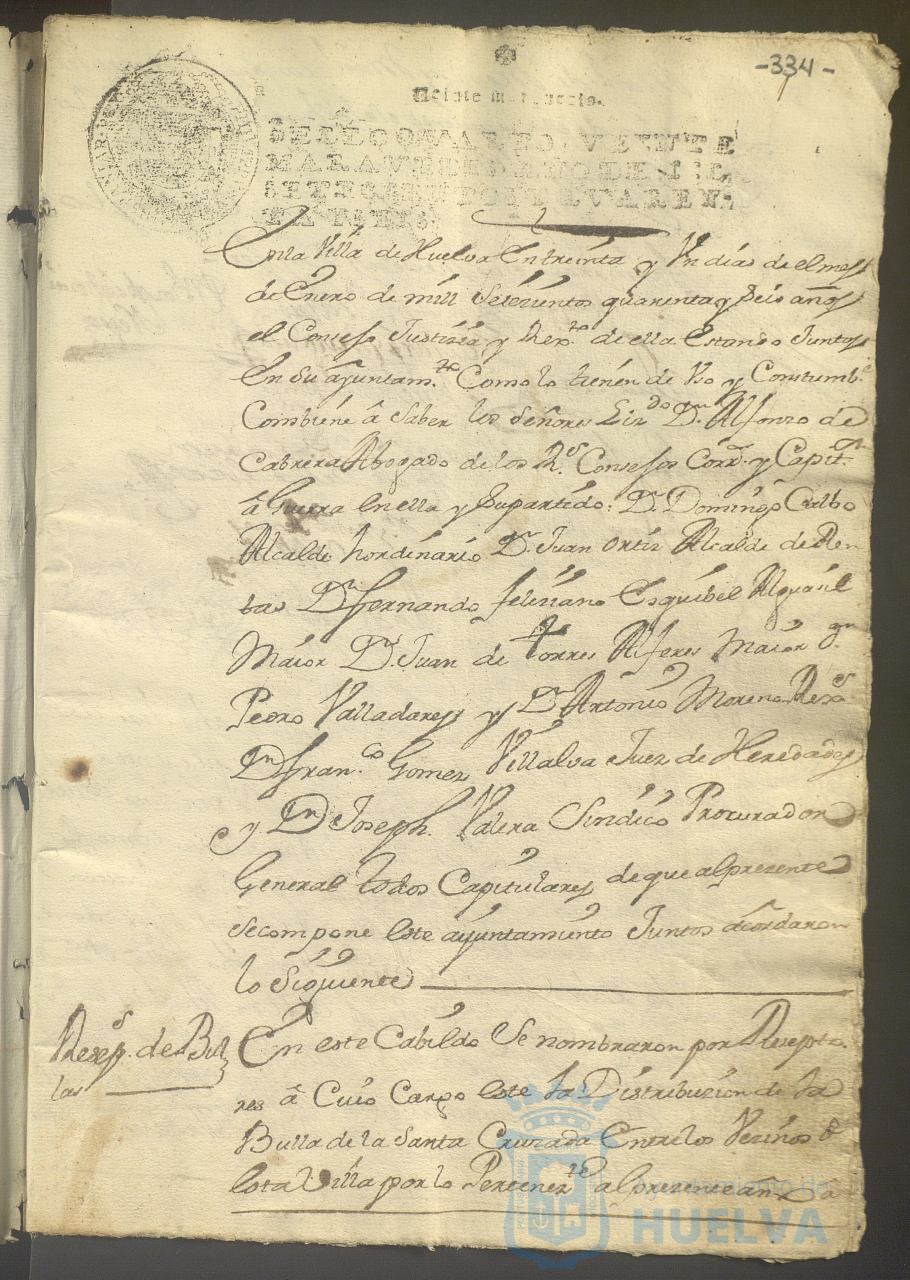 -334-
Veinte maravedis.
SELLO QVARTO, VEINTE
MARAVEDIS, AÑO DE MIL
SETECIENTOS Y QVAREN-
TA Y SEIS.
En la Villa de Huelva En treinta y Un dias de el mes
de Enero de mill Setezientos quarenta y seis años
el Consejo Justizia y Rexto. de ella Estando Juntos
En su ayuntamto. Como lo tienen de Uso y Constumbe.
Combiene â saber los señores Lizdo. Dn. Alfonzo de
Cabrera Abogado de los Rs. Consejos Corrr. y Capitn.
â Guerra en ella y su partido: Dn. Domingo Calbo
Alcalde hordinario Dn. Juan Ortiz Alcalde de Ren
tas Dn. fernando feliziano Esquibel Alguasil
Maior Dn. Juan de Torres Alferes Maior Dn.
Pedro Valladares y Dn. Antonio Moreno Rexs.
Dn. franco. Gomez Villalva Juez de Heredades
y Dn. Joseph Valera Sindico Procurador
General todos Capitulares de que al prezente
se compone este ayuntamiento Juntos acordaron
lo siguiente
Reseps. de Bul
las
En este Cabildo Se nombraron por Resepto
res â Cuio Cargo este la Distribuzion de la
Bulla de la Santa Cruzada Entre los Vezinos de
esta Villa por lo Pertenezte. al prezente an
Ayuntamiento de
HUELVA